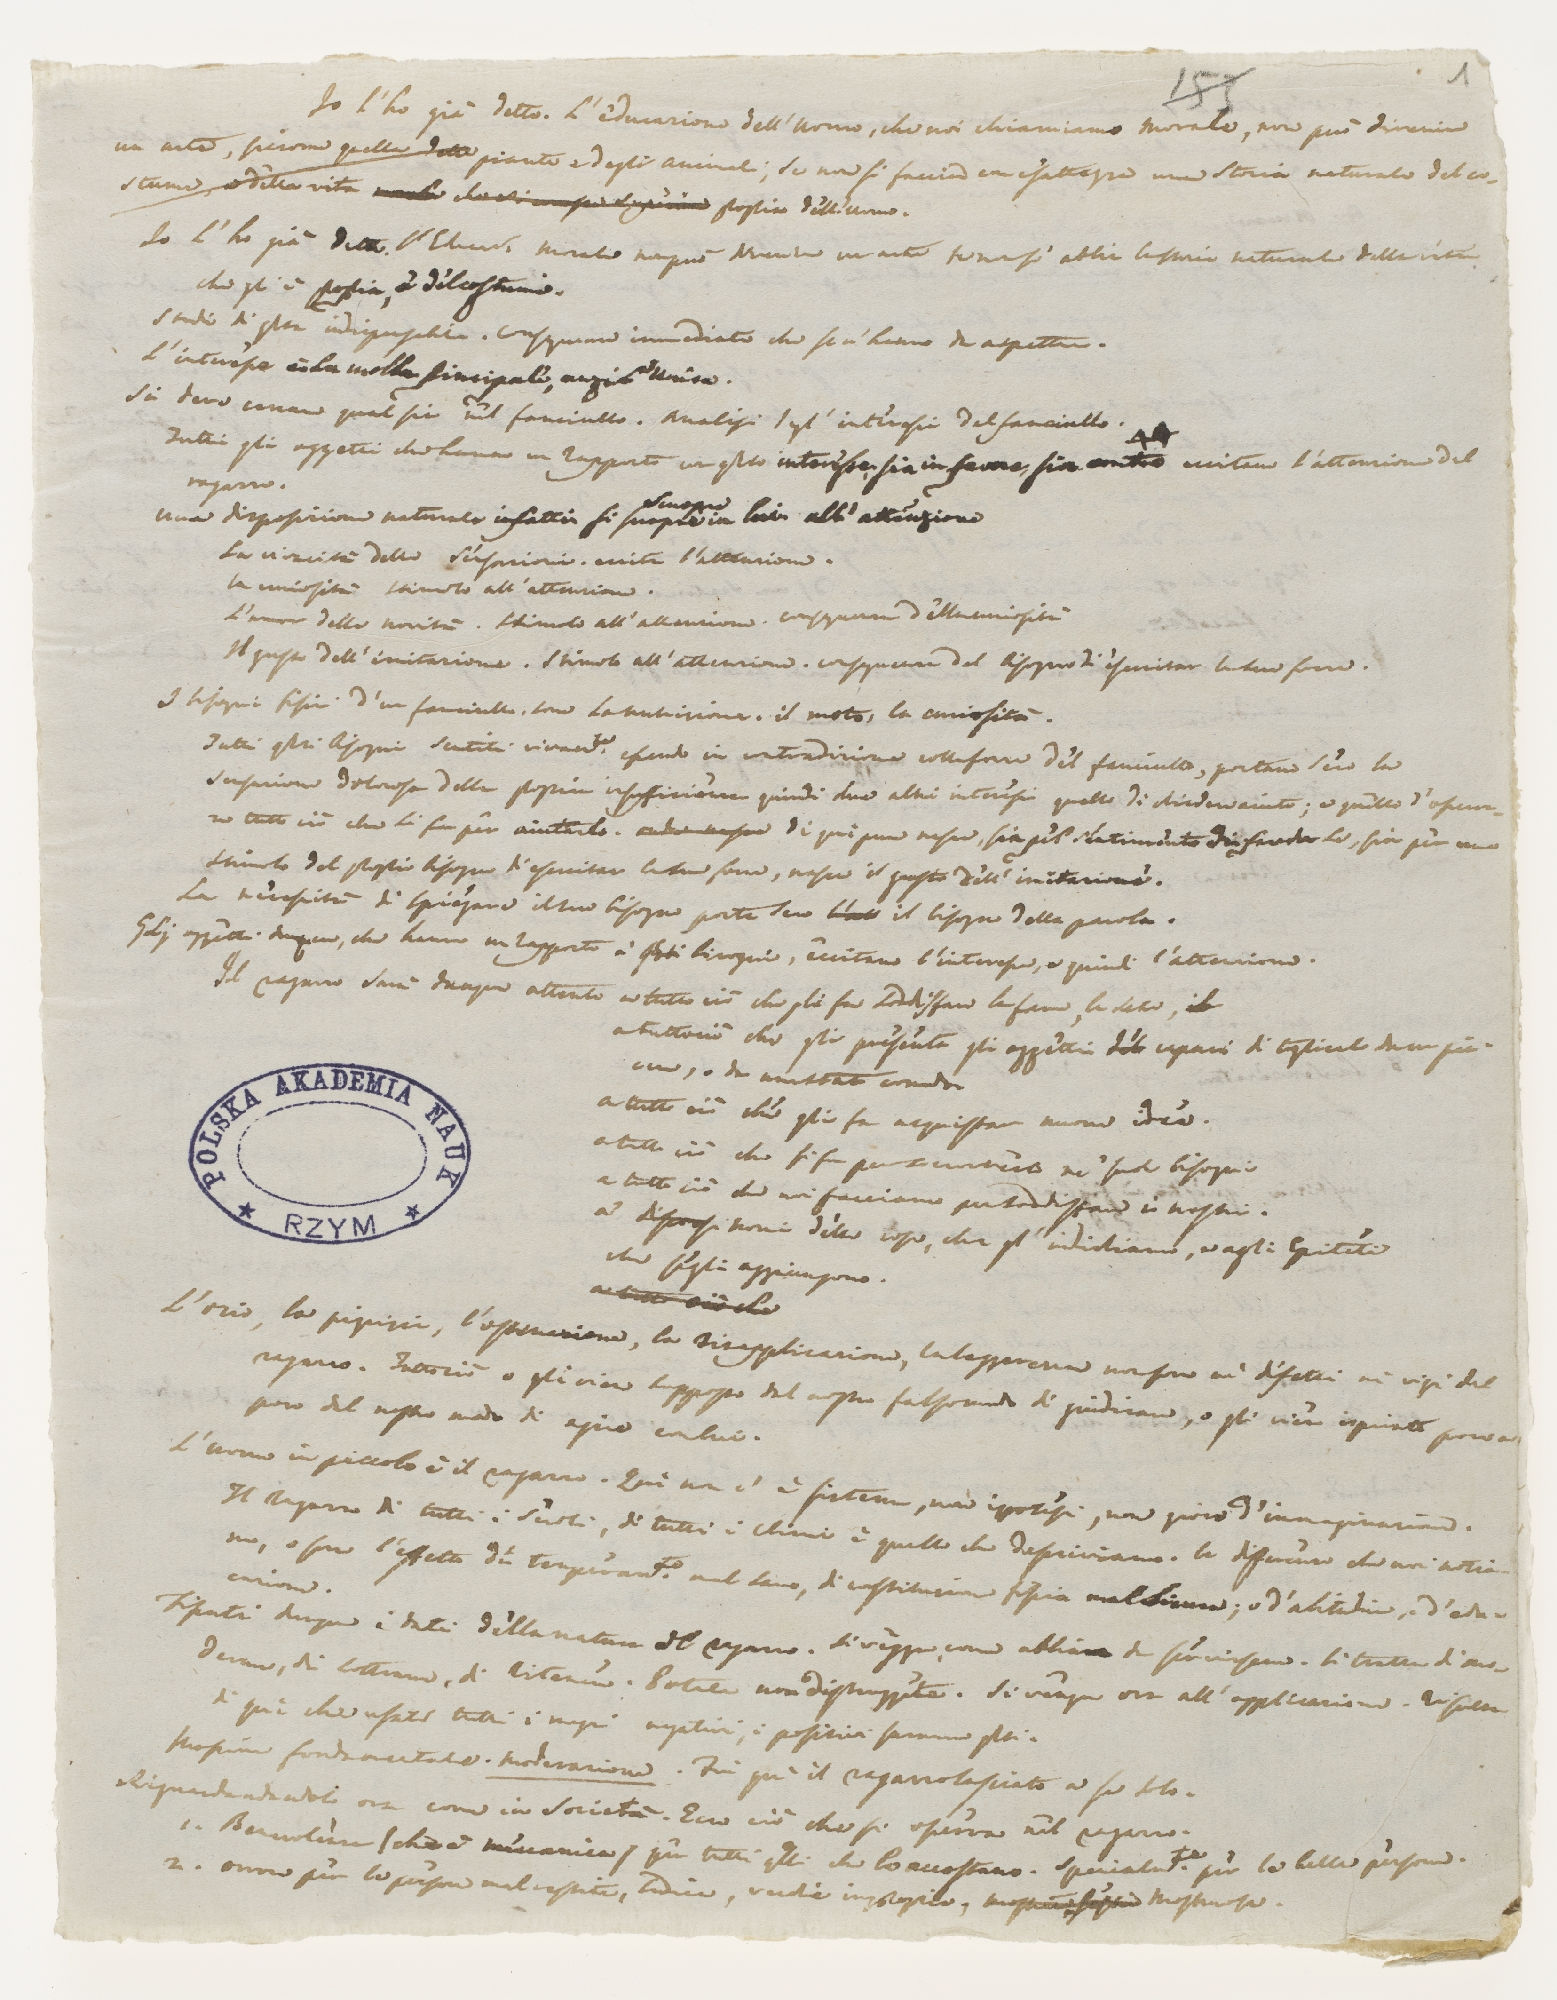 153 1
Io l'ho già detto. L'educazione dell'uomo, che noi chiamiamo morale, non può divenire
un arte, siccome quella delle piante e degli animali; se non si faccia con esattezza una storia naturale del co-
stume, e della vita propria dell'uomo.
Io l'ho già detto. l'Educ. morale non può divenire un arte se non si abbia la storia naturale della vita
che gli è propria, e del costume.
Studio di questa indispensabile. Conseguenze immediate che se n'hanno da aspettare.
L'interesse è la molla principale, anzi unica.
Si deve cercare qual sia nel fanciullo. Analisi degl'interessi del fanciullo.
Tutti gli oggetti che hanno un rapporto con questo interesse, sia in favore, sia contro eccitano l'attenzione del
ragazzo.
Una disposizione naturale infatti si scuopre in lui all'attenzione
La vivacità delle sensazioni. eccita l'attenzione.
la curiosità stimolo all'attenzione.
L'amor della novità. stimolo all'attenzione. conseguenza della curiosità
Il gusto dell'imitazione. Stimolo all'attenzione. conseguenza del bisogno di esercitar le sue forze.
I bisogni fisici d'un fanciullo. sono la nutrizione. il moto, la curiosità.
Tutti questi bisogni sentiti vivamte. essendo in contradizione colle forze del fanciullo, portano seco la
sensazione dolorosa della propria insufficienza quindi due altri interessi quello di chieder aiuto; e quello d'osserva-
re tutto ciò che si fa per aiutarlo. di qui pure nasce, sia pel sentimento di , sia per uno
stimolo del proprio bisogno di esercitar le sue forze, nasce il gusto dell'imitazione.
La necessità di spiegare il suo bisogno porta seco il bisogno della parola.
Gli oggetti dunque, che hanno un rapporto a questi bisogni, eccitano l'interesse, e quindi l'attenzione.
Il ragazzo sarà dunque attento a tutto ciò che gli fa soddisfare la fame, la sete, il
a tutto ciò che gli presenta gli oggetti capaci di toglierlo da un pia-
cere, o da
a tutto ciò che gli fa acquistar nuove idee.
a tutto ciò che si fa per ne' suoi bisogni
a tutto ciò che noi facciamo per soddisfare i nostri.
a' nomi delle cose, che gl'indichiamo, e agli Epiteti
che segli aggiungono.
a tutto ciò che
L'ozio, la pigrizia, l'ostinazione, la disapplicazione, la leggerezza non sono nè difetti nè vizi del
ragazzo. Tutto ciò o gli vien supposto dal nostro falso modo di giudicare, o gli vien ispirato poco a
poco dal nostro modo di agire con lui.
L'uomo in piccolo è il ragazzo. Quì non c'è sistema, non ipotesi, non gioco d'immaginazione.
Il ragazzo di tutti i secoli, di tutti i climi è quello che descriviamo. le differenze che noi notia-
mo, o sono l'effetto di temperamto. mal sano, di costituzione fisica ; o d'abitudini, o d'edu-
cazione.
Fissati dunque i dati della natura del ragazzo. Si vegga come abbiam da servircene. Si tratta di mo-
derare, di sottrarre, di ritenere. Potate non distruggete. Si venga ora all'applicazione. Risulta
di quì che usati tutti i mezzi negativi, i positivi saranno pochi.
Massima fondamentale. Moderazione. Fin quì il ragazzo lasciato a se solo.
Riguardandolo ora come in Società. Ecco ciò che si osserva nel ragazzo.
1. Benevolenza (che è meccanica) per tutti quelli che lo accostano. Specialmte. per le belle persone.
2. orrore per le persone mal vestite, sudice, vecchie , mostruose.
POLSKA AKADEMIA NAUK
RZYM